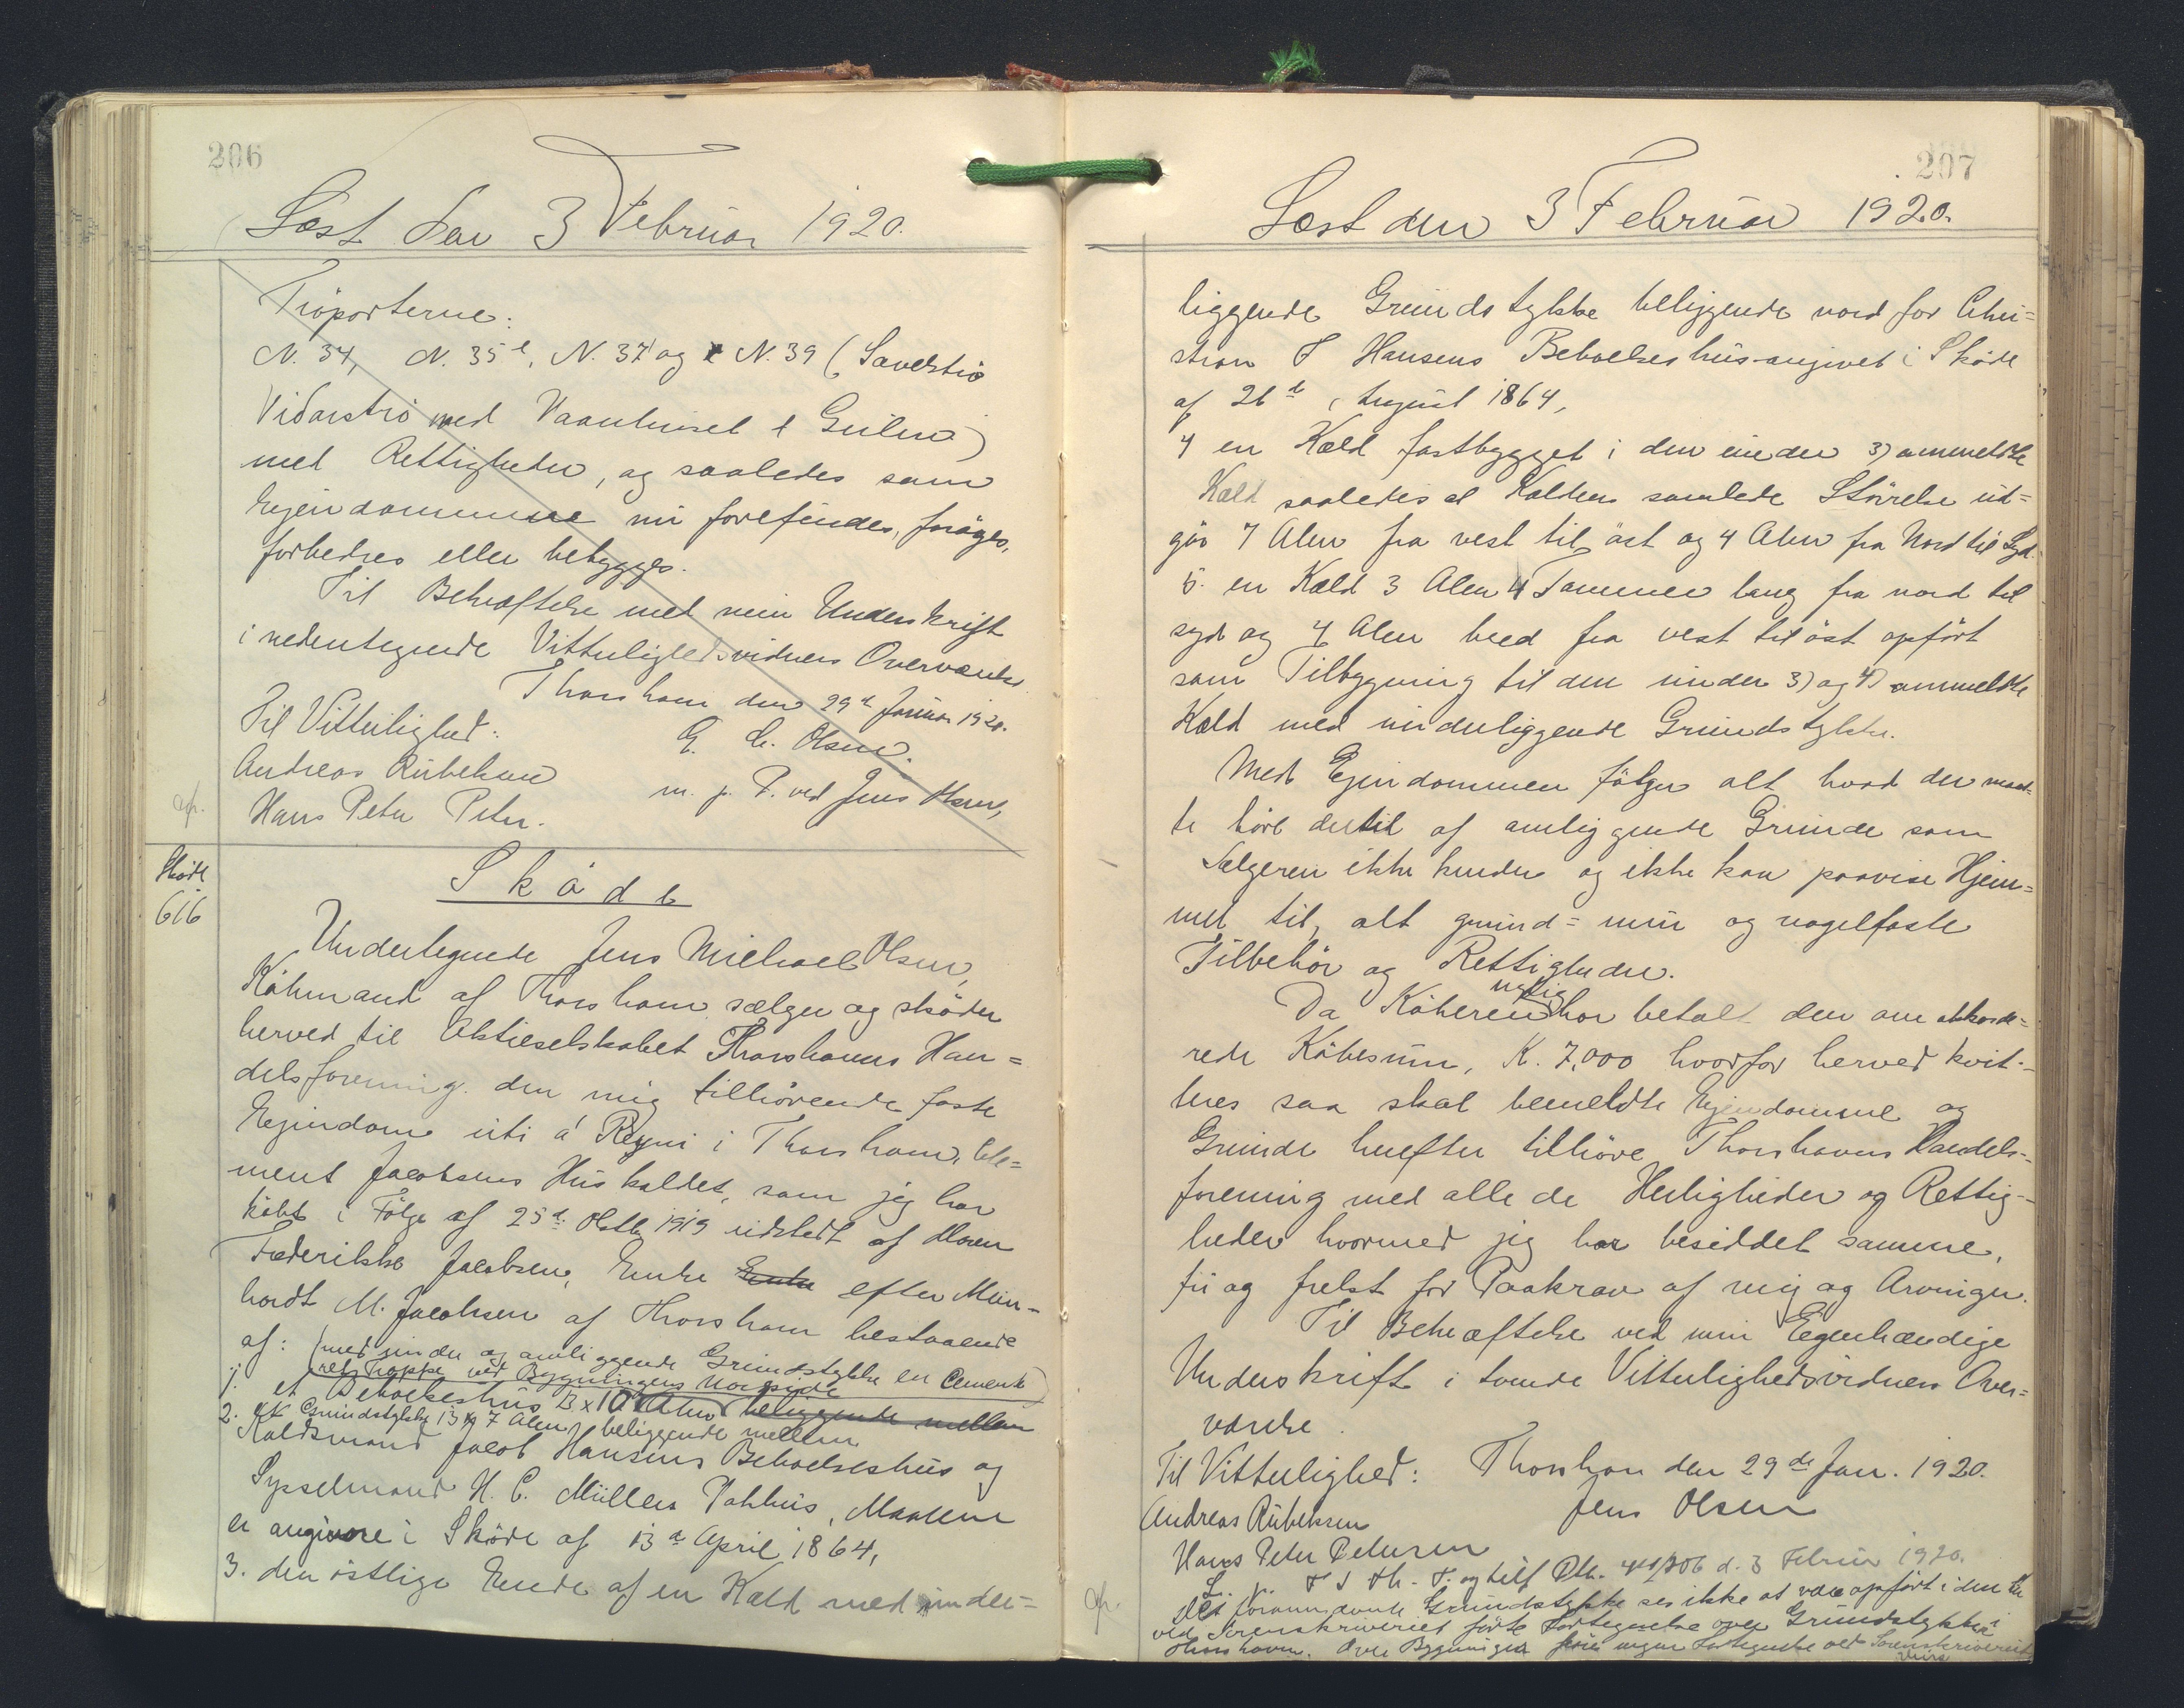 206
Læst den 3 Februar 1920.
Tröporterne:
N. 34, N. 35, N. 37 og N. 39 (
med Vaanhuset
med Rettigheder, og saaledes som
Ejendommene nu forefindes, foröges,
forbedres eller bebygges.
Til Bekræftelse med min Underskrift
i nedentegnede Vitterlighedsvidners Overværelse
Thorshavn den 29de Januar 1920.
Til Vitterlighed:
Olsen.
Andreas Rubeksen
m. p. P. ved Jens Olsen,
Hans Peter Peter.
Sköde
616
Sköde
Undertegnede Jens Michael Olsen,
Köbmand af Thorshavn sælger og sköder
herved til Aktieselskabet Thorshavns Han=
delsforening den mig tilhörende faste
Ejendom uti á Reyni i Thorshavn, Kle=
ment Jacobsens Hus kaldet, som jeg har
köbt i Fölge af 25de Oktb. 1919 udstedt af Maren
Frederikke Jacobsen, Enke Enke efter Mein=
hardt M. Jacobsen af Thorshavn bestaaende
af: (med under og omliggende Grundstykke en Cement
Trappe ved Bygningens Nordside)
1. et Beboelseshus 13 x 10 Alen beliggende mellem
2. et Grundstykke 13 x 7 Alen, beliggende mellem
Jacob Hansens Beboelseshus og
Sysselmand H. C. Müllers Pakhus, Maalene
er angivne i Sköde af 13de April 1864,
3. den östlige Ende af en Kæld med under=
207
Læst den 3 Februar 1920.
liggende Grundstykke beliggende nord for Chri=
stian J Hansens Beboelseshus angivet i Sköde
af 26de August 1864,
4 en Kæld fastbygget i den under 3) ommeldte
Kæld saaledes at Kældens samlede Störrelse ud=
gör 7 Alen fra vest til öst og 4 Alen fra Nord til Syd.
5. en Kæld 3 Alen 4 Tommer lang fra nord til
syd og 4 Alen bred fra vest til öst opfört
som Tilbygning til den under 3) og 4) ommeldte
Kæld med underliggende Grundstykke.
Med Ejendommen fölger alt hvad der maat=
te höre dertil af omliggende Grunde som
Sælgeren ikke kender og ikke kan paavise Hjem=
mel til, alt grund= mur og nagelfaste
Tilbehör og Rettigheder.
Da Köberen rigtig har betalt den om akkorde=
rede Köbesum, K. 7,000 hvorfor herved kvit=
teres saa skal bemeldte Ejendomme og
Grunde herefter tilhöre Thorshavns Handels=
forening med alle de Herligheder og Rettig=
heder hvormed jeg har besiddet samme,
fri og frelst for Paakrav af mig og Arvinger.
Til Bekræftelse ved min Egenhændige
Underskrift i tvende Vitterlighedsvidners Over=
værelse.
Til Vitterlighed: Thorshavn den 29de Jan. 1920.
Andreas Rubeksen
Jens Olsen
Hans Peter Petersen
d. 3 Februar 1920.
Det Grundstykke ses ikke at være opfört i den
ved Sorenskriveriet förte Fortegnelse over Grundstykker i
Thorshavn. Over Bygninger föres ingen Fortegnelse ved Sorenskriveriet